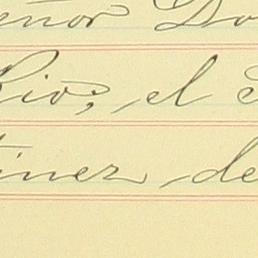 eñor Do
Rio; el S
tinez de